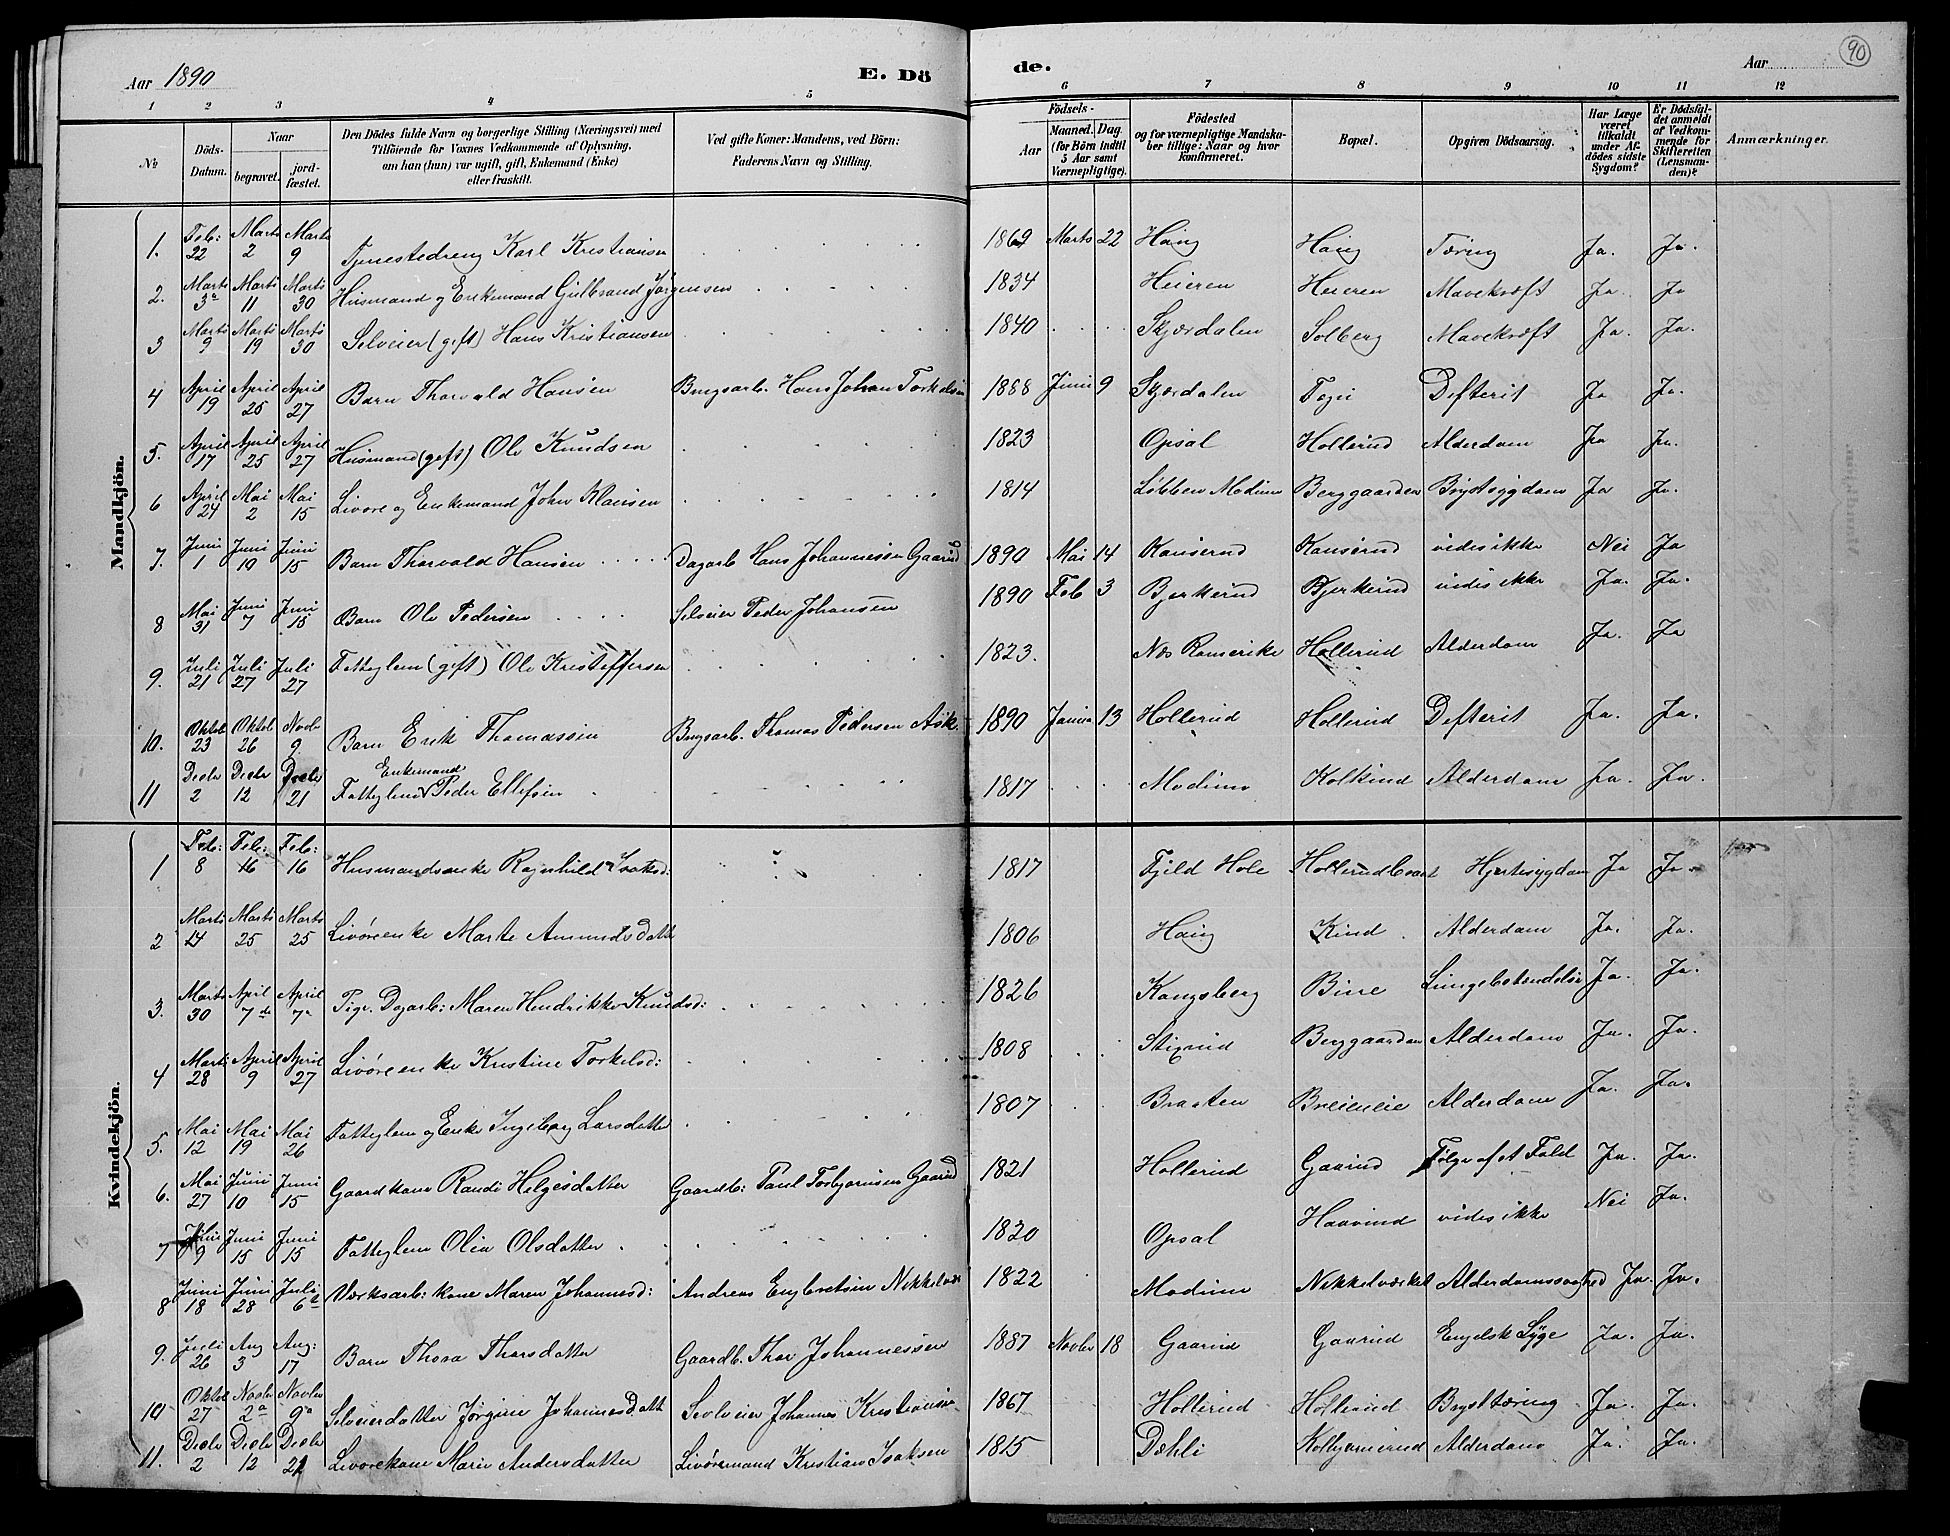 90
Aar 1890 E. Dö de. Aar
1 2 3 4 5 6 7 8 9 10 11 12
№ Döds-Datum. Naar begravet. jordfæstet. Den Dödes fulde Navn og borgerlige Stilling (Næringsvei) med Tilföiende for Voxnes Vedkommende af Oplysning, om han (hun) var ugift, gift, Enkemand (Enke) eller fraskilt. Ved gifte Koner: Mandens, ved Börn: Faderens Navn og Stilling. Födsels- Aar Maaned. Dag. (for Börn indtil 5 Aar samt Værnepligtige). Födested og for værnepligtige Mandskaber tillige: Naar og hvor konfirmeret. Bopæl. Opgiven Dödsaarsag. Har Læge været tilkaldt under Afdödes sidste Sygdom? Er Dödsfaldet anmeldt af Vedkommende for Skifteretten (Lensmanden)? Anmærkninger.
Mandkjön.
1. Feb: 22 Marts 2 Marts 9 Tjenestedreng Karl Kristiansen 1869 Marts 22 Haug Haug Tæring Ja. Ja.
2. Marts 3 Marts 11 Marts 30 Husmand og Enkemand Gulbrand Jørgensen 1834 Heieren Heieren Mavekræft Ja. Ja
3 Marts 9 Marts 19 Marts 30 Selveier (gift) Hans Kristiansen 1840 Skjærdalen Solberg Mavekræft Ja. Ja.
4 April 19 April 25 April 27 Barn Thorvald Hansen Brugsarb. Hans Johan Torkelsen 1888 Juni 9 Skjærdalen Defterit Ja Ja.
5. April 17 April 25 April 27 Husmand (gift) Ole Knudsen 1823 Opsal Hollerud Alderdom Ja Ja.
6 April 24 Mai 2 Mai 15 Livøre og Enkemand John Klausen 1814 Løbben Modum Berggaarden Brystsygdom Ja Ja.
7. Juni 1 Juni 10 Juni 15 Barn Thorvald Hansen Dagarb Hans Johannessen Gaarud 1890 Mai 14 Kanserud Kanserud vides ikke Nei Ja
8 Mai 31 Juni 7 Juni 15 Barn Ole Pedersen Selveier Peder Johansen 1890 Feb 3 Bjerkerud Bjerkerud vides ikke Ja. Ja.
9. Juli 21 Juli 27 Juli 27 Fattiglem (gift) Ole Kristoffersen 1823. Næs Romerike Hollerud Alderdom Ja. Ja
10. Oktob 23 Oktob 26 Novbr 9. Barn Erik Thomassen Brugsarb. Thomas Pedersen Ask. 1890 Janua 13 Hollerud Hollerud Defterit Ja. Ja.
11 Decbr 2 Decbr 12 Decbr 21 Fattiglem Enkemand Peder Ellefsen 1817 Modum Kolkind Alderdom Ja. Ja.
Kvindekjön.
1 Feb: 8 Feb: 16 Feb: 16 Husmandsenke Ragnhild Isaksd: 1817 Fjeld Hole Hjertesygdom Ja Ja.
2 Marts 14 Marts 25 Marts 25 Livøreenke Marte Amundsdatt 1806 Haug Kind. Alderdom Ja. Ja.
3. Marts 30 April 7de April 7 Pige. Dagarb: Maren Hendrikke Knudsd: 1826 Kongsberg Lungebetændelse Ja. Ja.
4 Marts 28 April 9 April 27 Livøreenke Kristine Torkelsd: 1808 Stixrud Berggaarden Alderdom Ja. Ja.
5. Mai 12 Mai 19 Mai 26 Fattiglem og Enke Ingeborg Larsdatter 1807 Braaten Breieneie Alderdom Ja. Ja.
6. Mai 27 Juni 10 Juni 15 Gaardkone Randi Helgesdatter Gaardb: Paul Torbjørnsen Gaarud 1821 Hollerud Gaarud Følge af et Fald Ja. Ja.
7 Juni 9 Juni 15 Juni 15 Fattiglem Olia Olsdatter 1820 Opsal Haavind vides ikke Nei Ja.
8 Juni 18 Juni 28 Juli 6 Værksarb: kone Maren Johannesd: Andreas Engbretsen Nikkelvær 1822 Modum Nikkelværket Alderdomssvaghed Ja. Ja.
9. Juli 26 Aug 3 Aug: 17 Barn Thora Thorsdatter Gaardb. Thor Johannessen 1887 Novbr 18 Gaarud Gaarud Engelsk Syge Ja. Ja.
10 Oktob 27 Novbr 2 Novbr 9 Selveierdatter Jørgine Johannesdatt Selveier Johannes Kristiansen 1867 Hollerud Hollerud Brysttæring Ja. Ja.
11. Decbr 2 Decbr 12 Decbr 21 Livørekone Marie Andersdatter Livøremand Kristian Isaksen 1815 Dæhli Alderdom Ja. Ja.